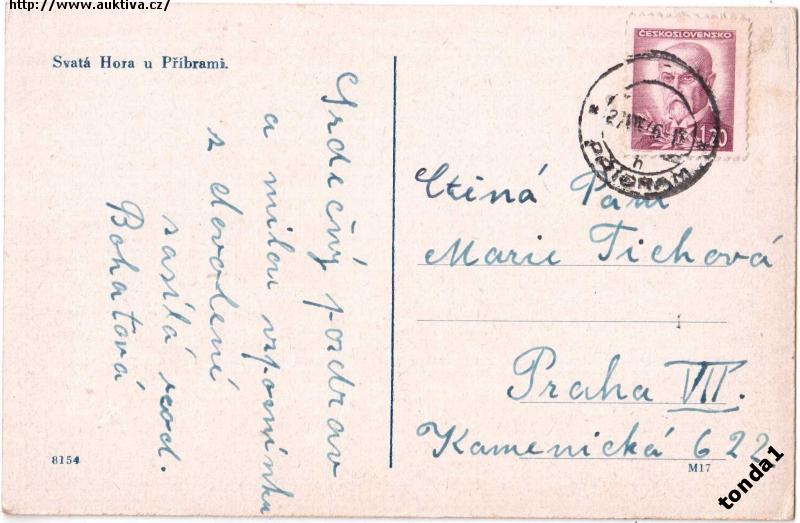 http://www.auktiva.cz/
Svatá Hora u Příbrami.
Srdečný pozdrav
a milou vzpomínku
z dovolené
zasílá rod.
Bohatová
ČESKOSLOVENSKO
1.20
PŘÍBRAM
h
Ctěná Paní
Marie Tichová
Praha VII.
Kamenická 622
8154
M17
tonda1